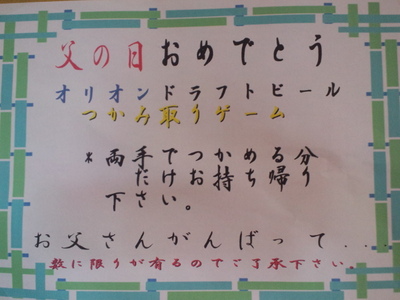 父の日おめでとう
オリオンドラフトビール
つかみ取りゲーム
* 両手でつかめる分
だけお持ち帰り
下さい。
お父さんがんばって....
数に限りが有るのでご了承下さい..